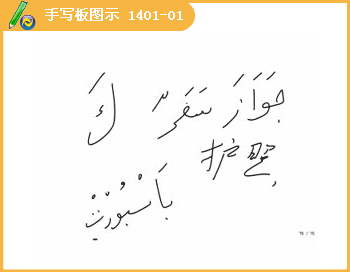 手写板图示 1401-01
جَوَازَ سَفَرِ كَ
护照
بَاسْبُورْتْ